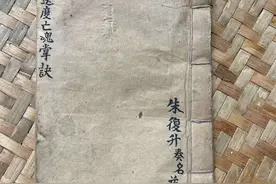 度亡魂掌訣
朱復升奏名